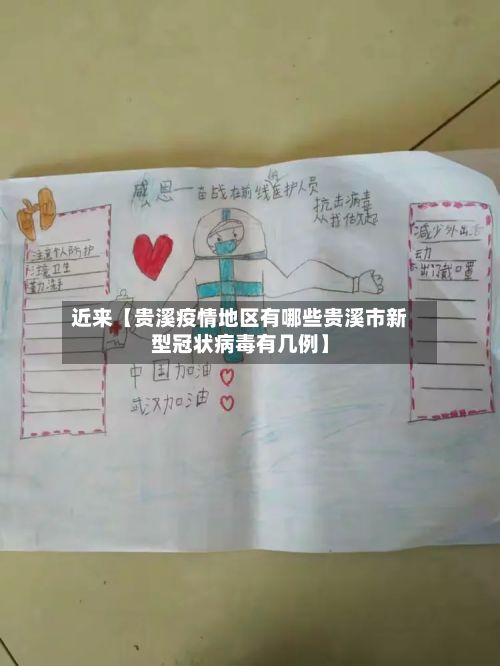 感恩一奋战在前线的医护人员
抗击病毒
从我做起
注意个人防护
环境卫生
勤洗手
减少外出活
动
出门戴口罩
近来【贵溪疫情地区有哪些贵溪市新
型冠状病毒有几例】
中国加油
武汉加油